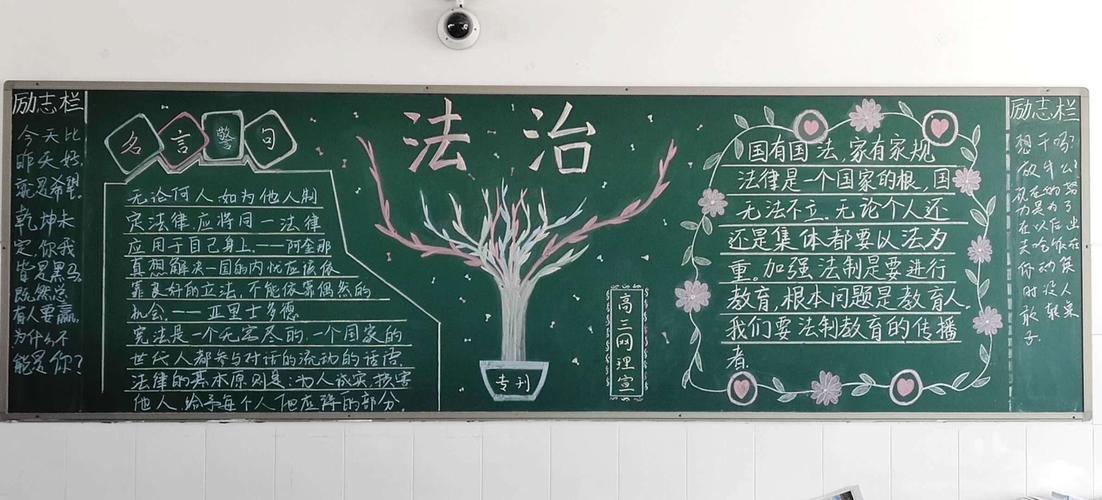 励志栏
今天比
昨天好
就是希望
乾坤未
定,你我
皆是黑马
既然总
有人要赢,
为什么不
能是你?
名言警句
无论何人,如为他人制
定法律,应将同一法律
应用于自己身上,——阿奎那
真想解决一国的内忧应该依
靠良好的立法,不能依靠偶然的
机会,——亚里士多德
宪法是一个无穷尽的,一个国家的
世代人都参与对话的流动的话语.
法律的基本原则是:为人诚实,损害
他人,给予每个人他应得的部分.
法治
专刊
高三网理宣
国有国法,家有家规
法律是一个国家的根,国
无法不立.无论个人还
还是集体都要以法为
重.加强法制是要进行
教育,根本问题是教育人
我们要法制教育的传播
者.
励志栏
想干吗?
放牛么!
现在的努
力是为了
在以后坐
去啥饭在
你动筷
时没人
敢转桌
子.